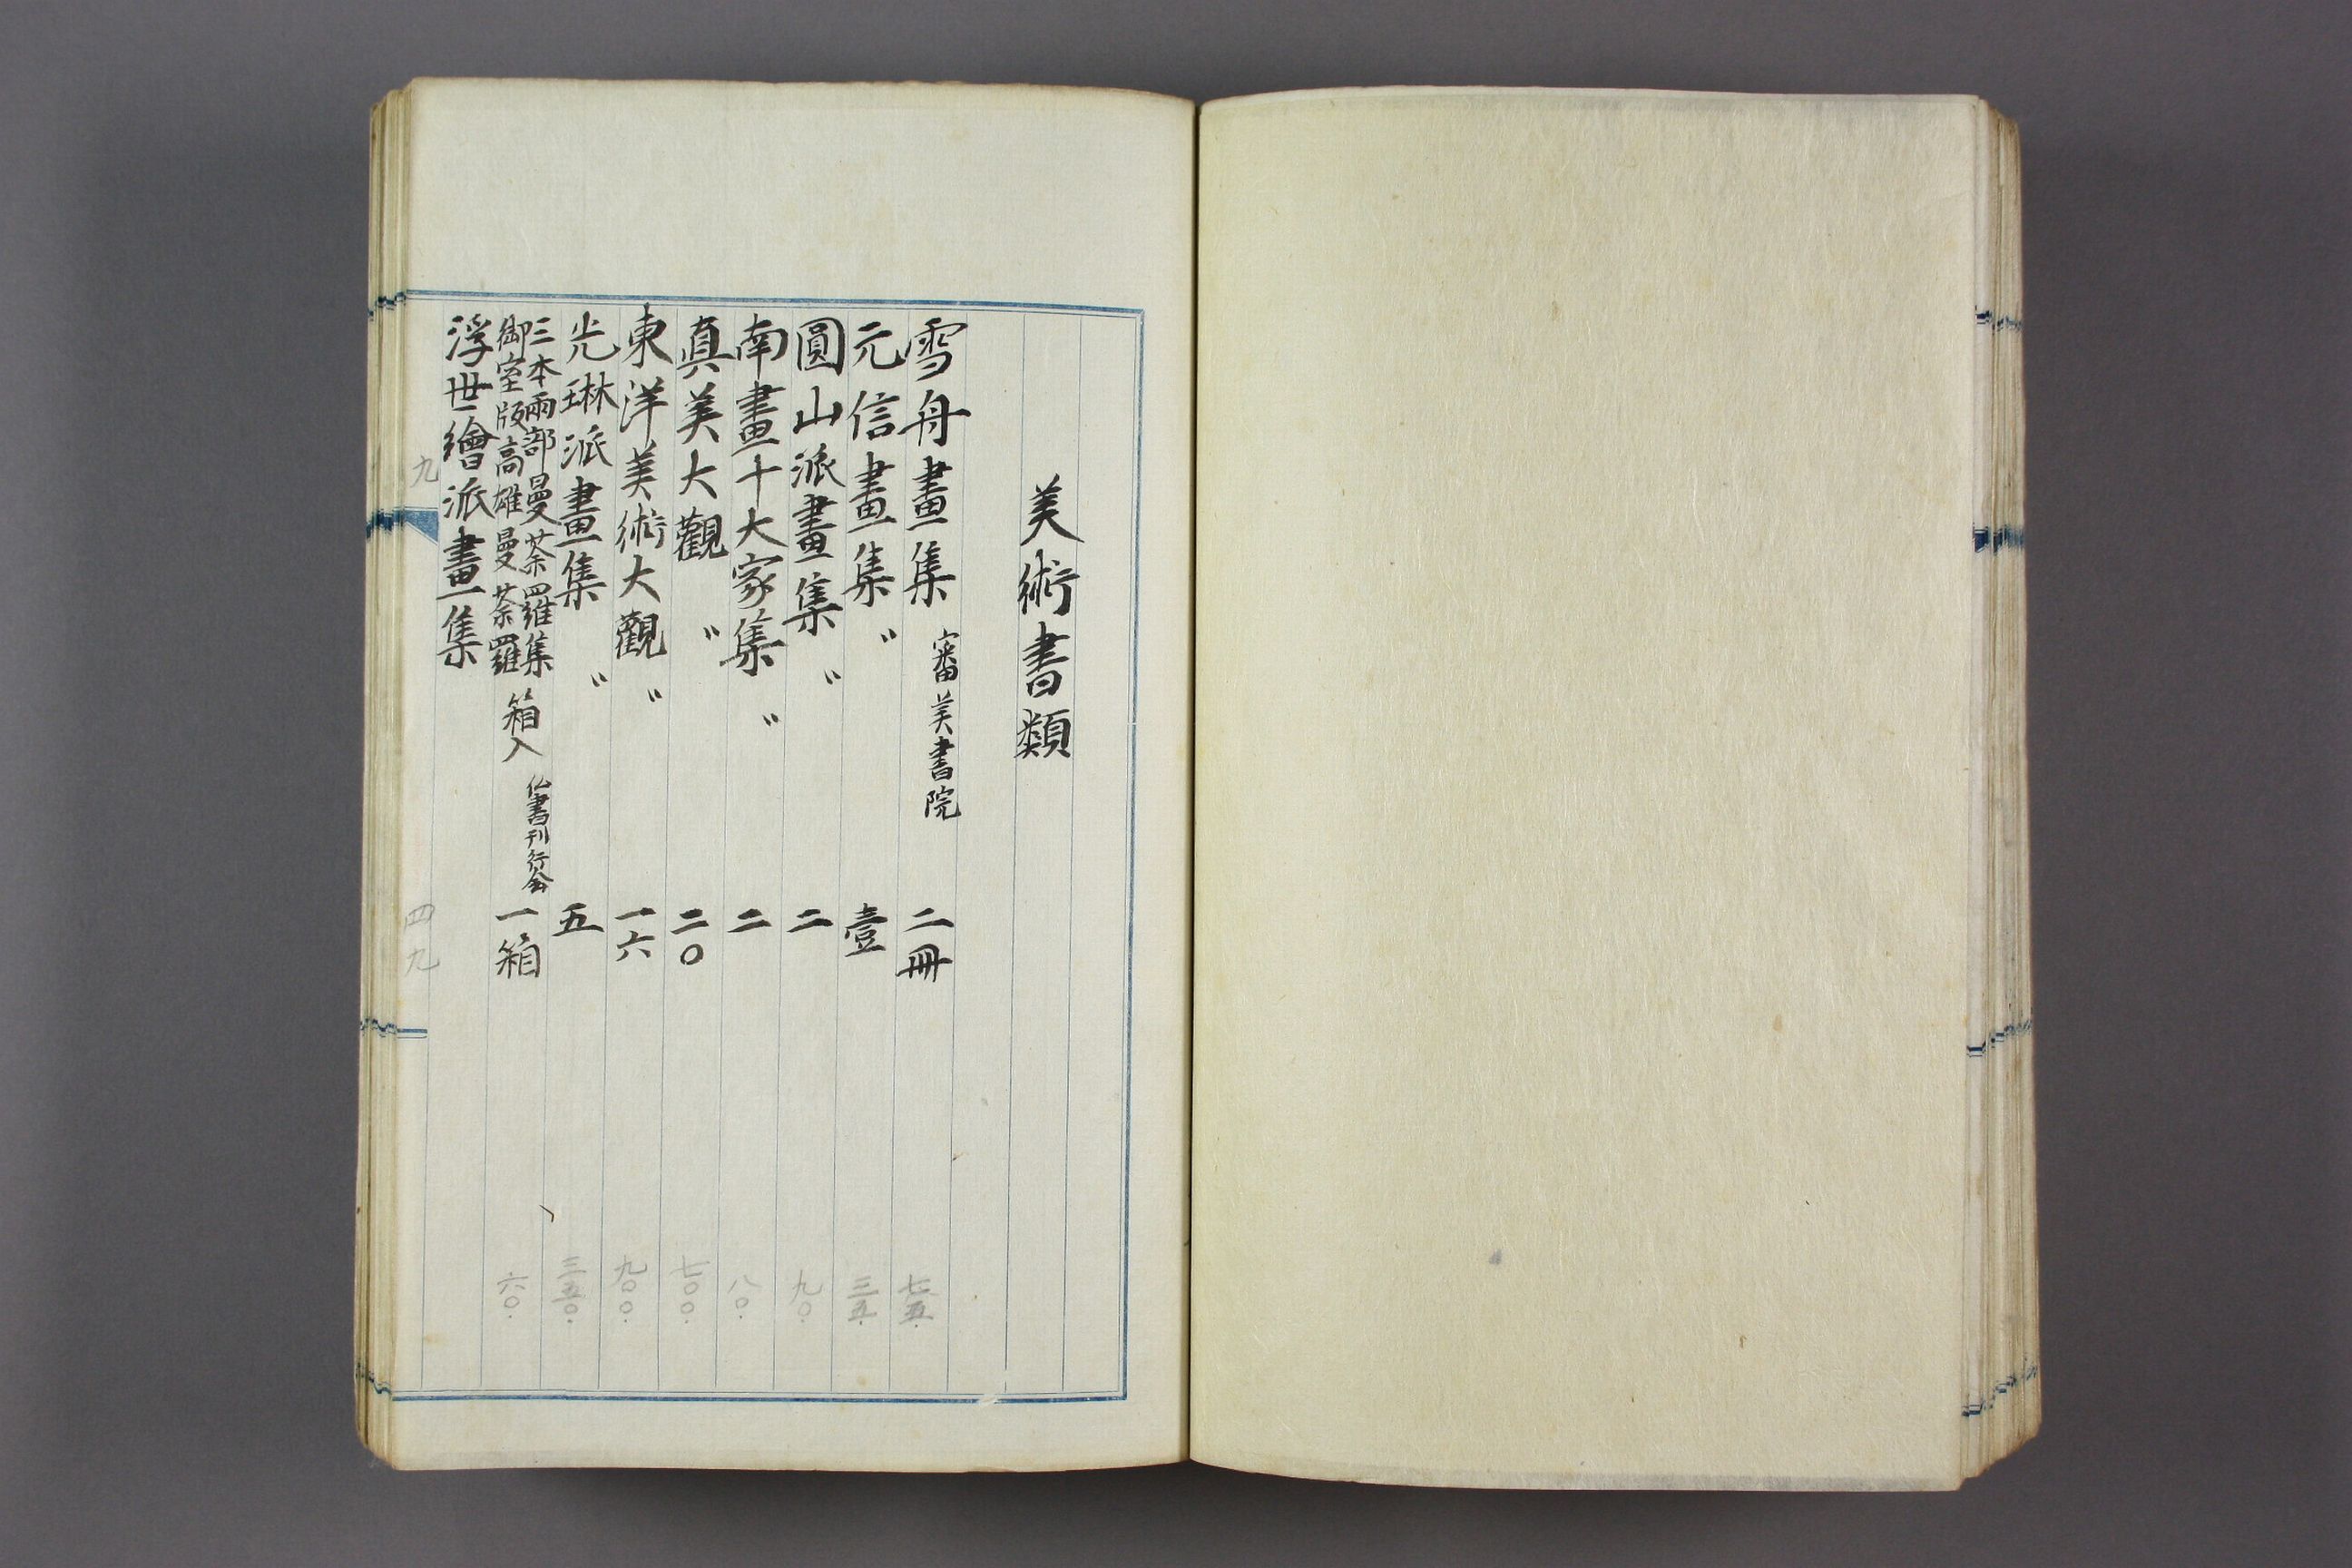 美術書類
雪舟畫集 審美書院 二冊 七五.
元信畫集 〃 壹 三五.
圓山派畫集 〃 二 九〇.
南畫十大家集 〃 二 八〇.
真美大觀 〃 二〇 七〇〇.
東洋美術大觀 〃 一六 九〇〇.
光琳派畫集 〃 五 三五〇.
三本両部曼荼羅集
御室版高雄曼荼羅 箱入 仏書刊行会 一箱 六〇.
浮世繪派畫集
九
四九